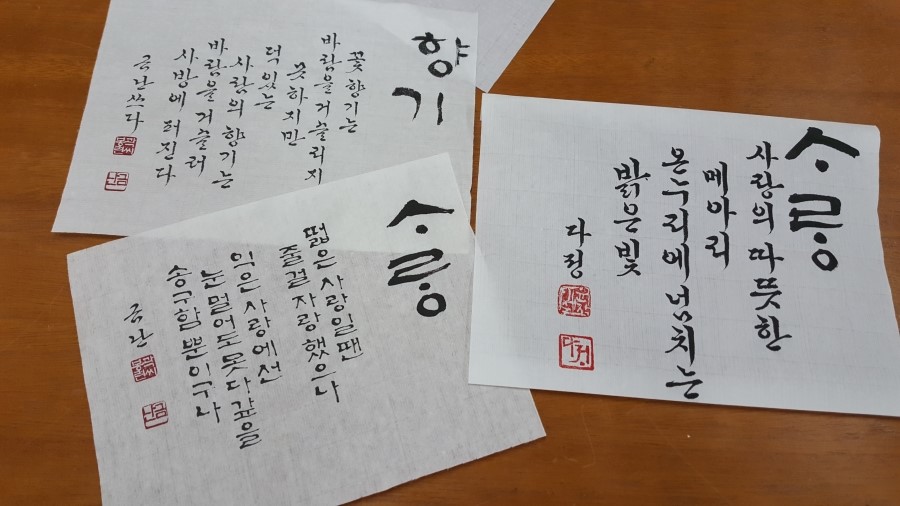 향기
꽃향기는
바람을거슬리지
못하지만
덕있는
사람의향기는
바람을거슬러
사방에퍼진다
금난쓰다
ᄉᆞᄅᆞᆼ
떫은 사랑일땐
줄걸 자랑했으나
익은 사랑에선
눈 멀어도 못다갚을
송구함 뿐이구나
금란
ᄉᆞᄅᆞᆼ
사랑의따뜻한
메아리
온누리에넘치는
밝은빛
다정